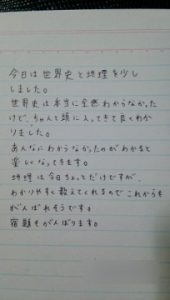 今日は世界史と地理を少し
しました。
世界史は本当に全然わからなかった
けど、ちゃんと頭に入ってきて良くわか
りました。
あんなにわからなかったのがわかると
楽しくなってきます。
地理は今日ちょっとだけですが、
わかりやすく教えてくれるのでこれからも
がんばれそうです。
宿題もがんばります。